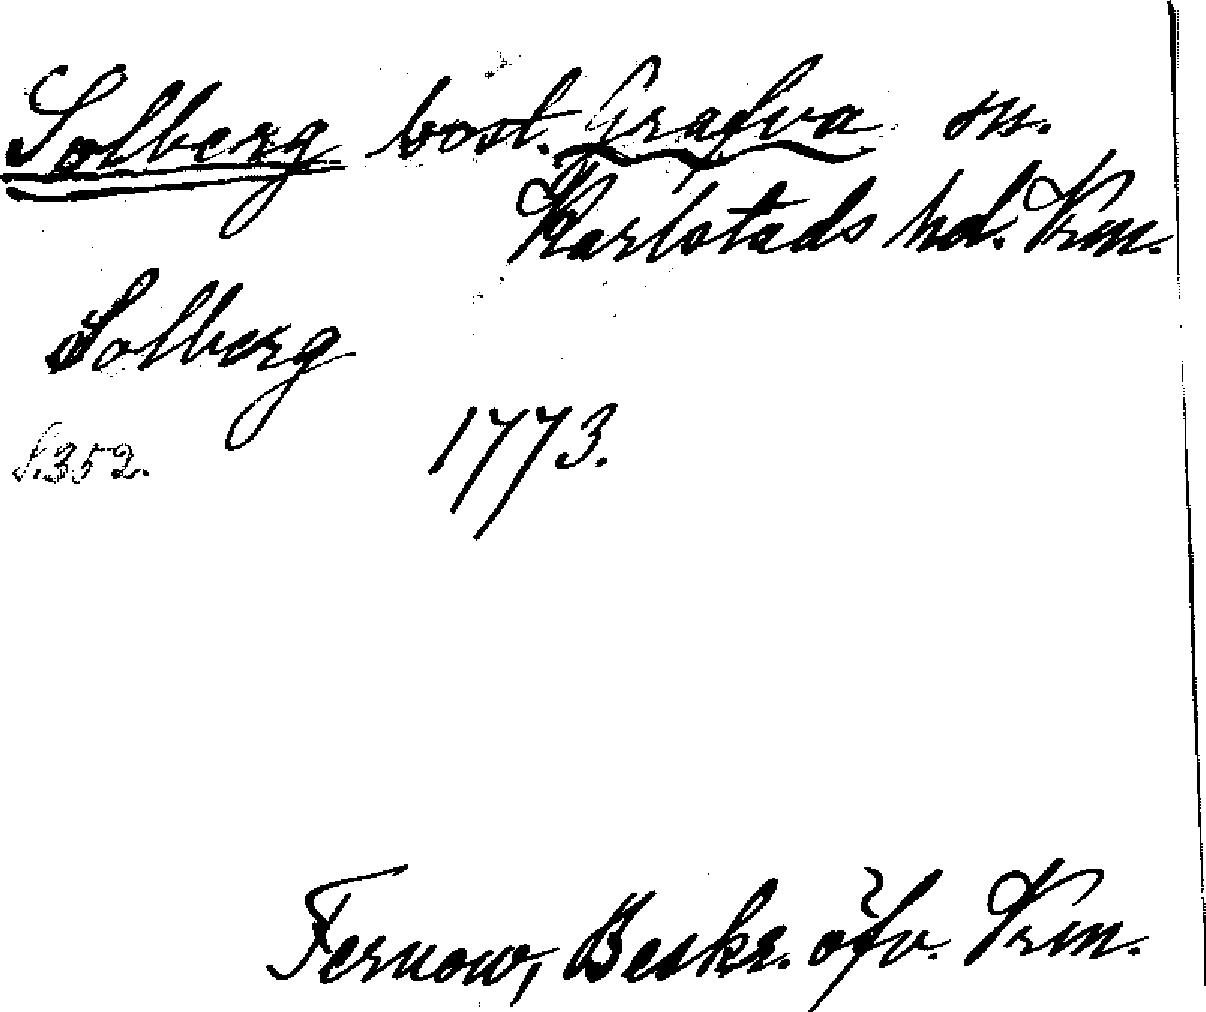 Solberg bost. Grafva sn.
Karlstads hd. Vrm.
Solberg
S. 352. 1773.
Fernow, Beskr. öfv. Vrm.